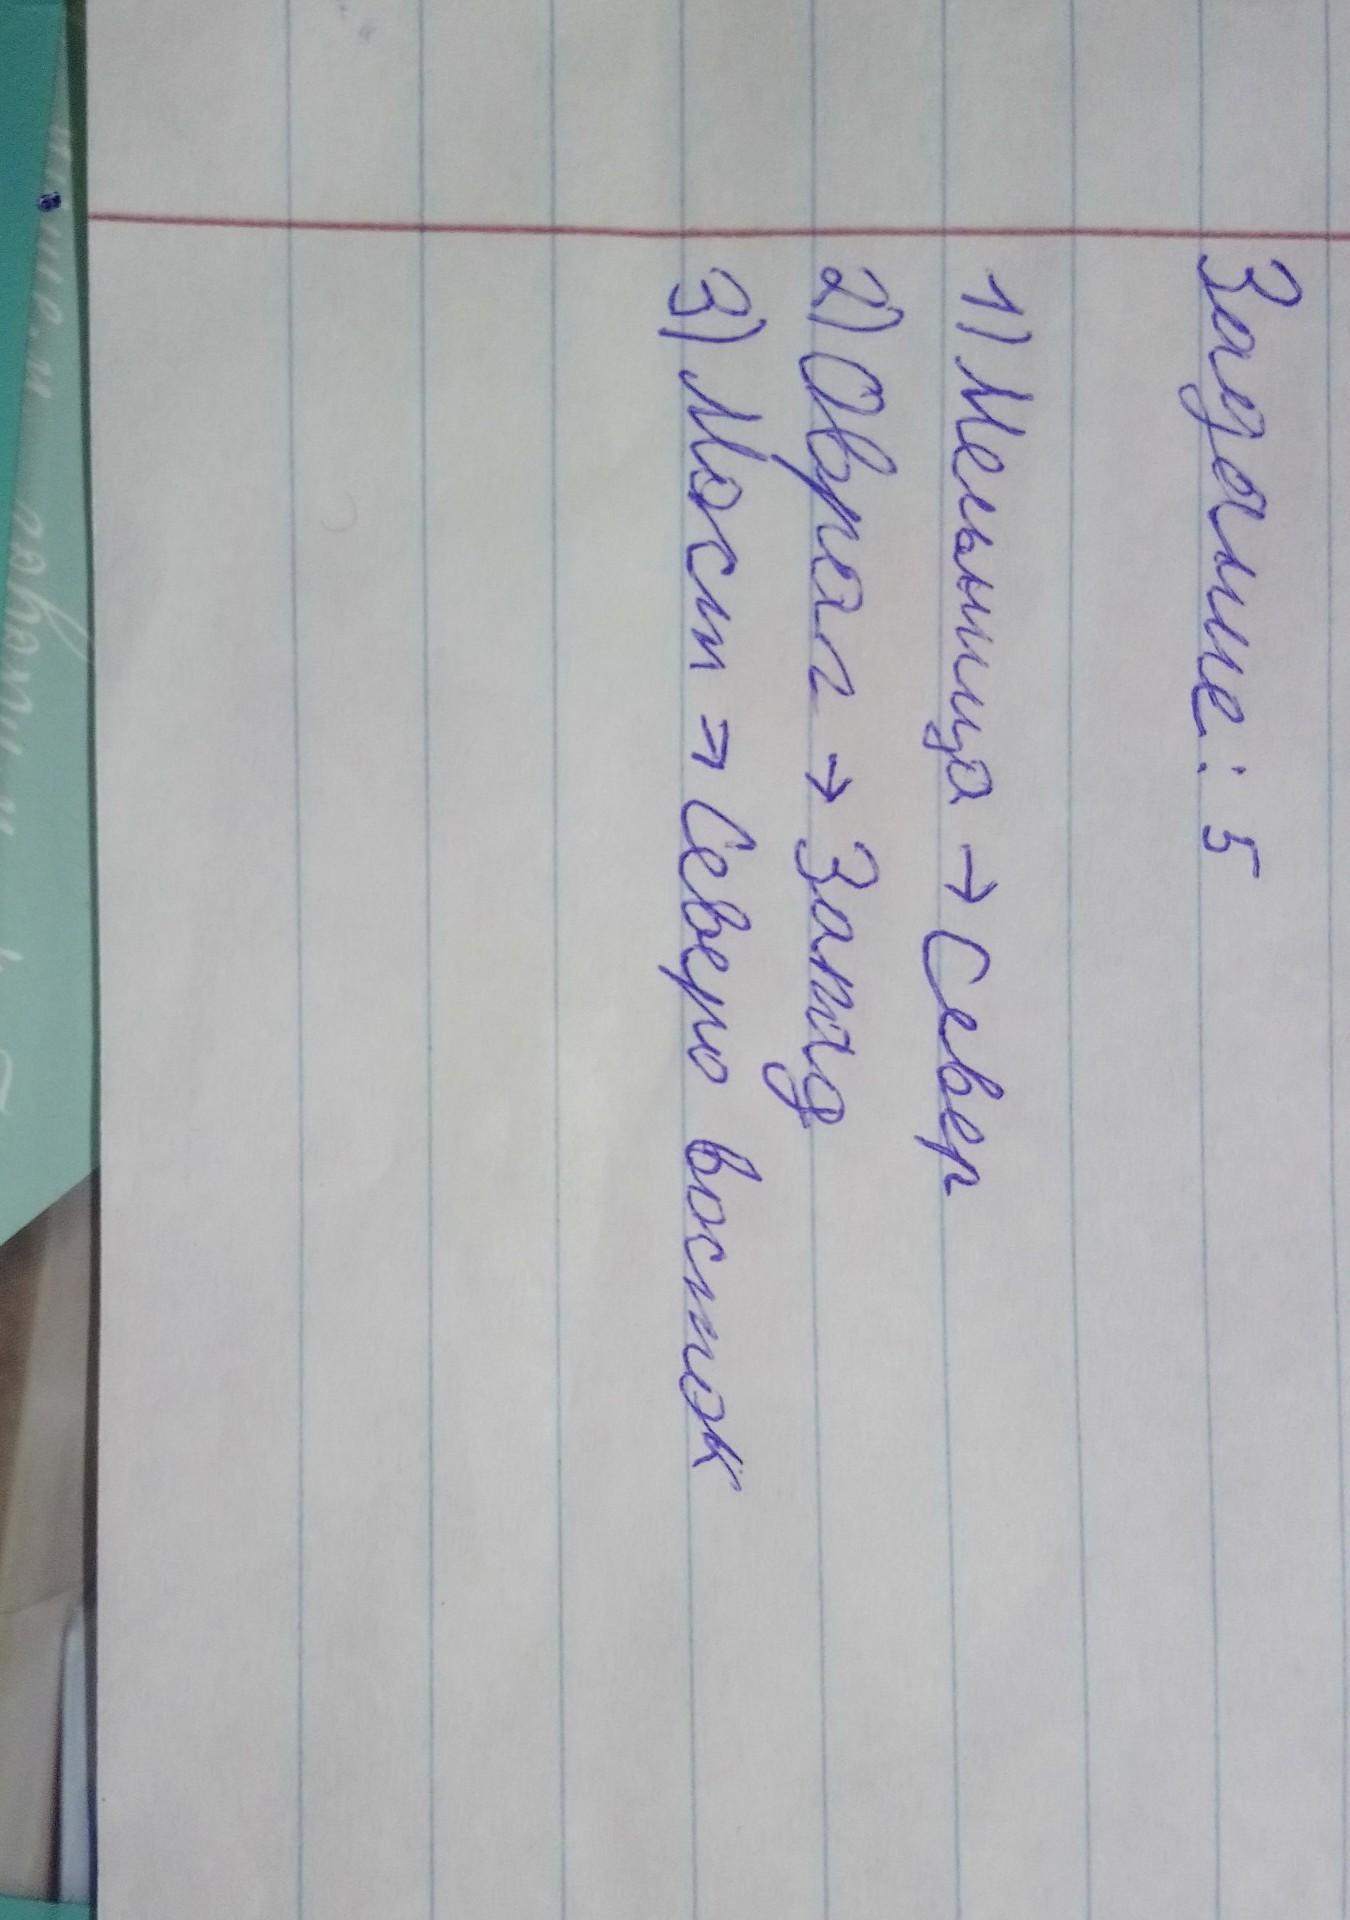 Задание: 5
1) Мельница → Север
2) Овраг → Запад
3) Мост → Северо восток